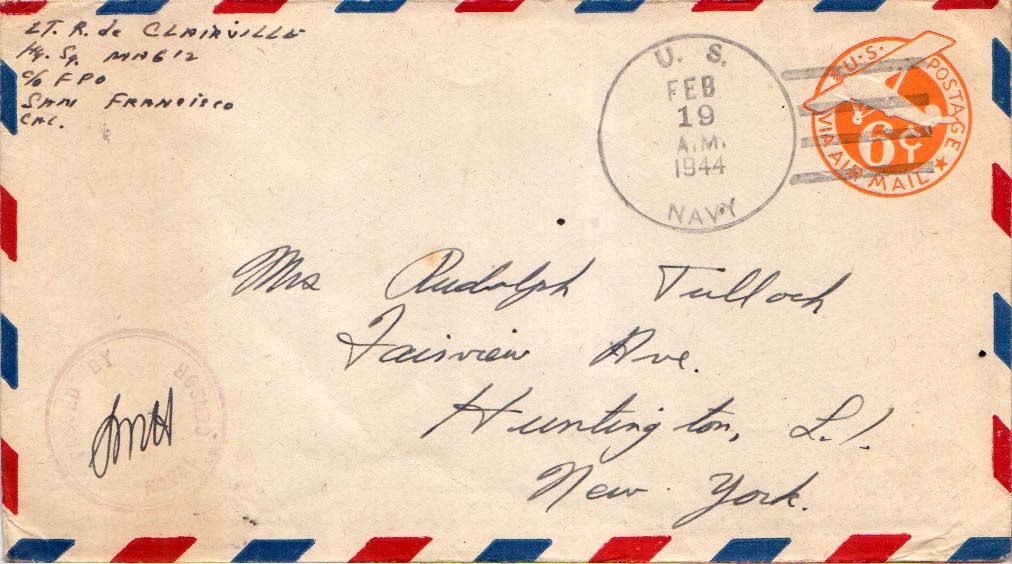 LT. R. de CLAIRVILLE
Hq. Sq. MAG 12
c/o FPO
SAN FRANCISCO
CAL.
U. S.
FEB
19
A.M.
1944
NAVY
U.S. POSTAGE
6¢
VIA AIR MAIL
Mrs Rudolph Tulloch
Fairview Ave.
Huntington, L.I.
New York.
PASSED BY
NAVAL CENSOR